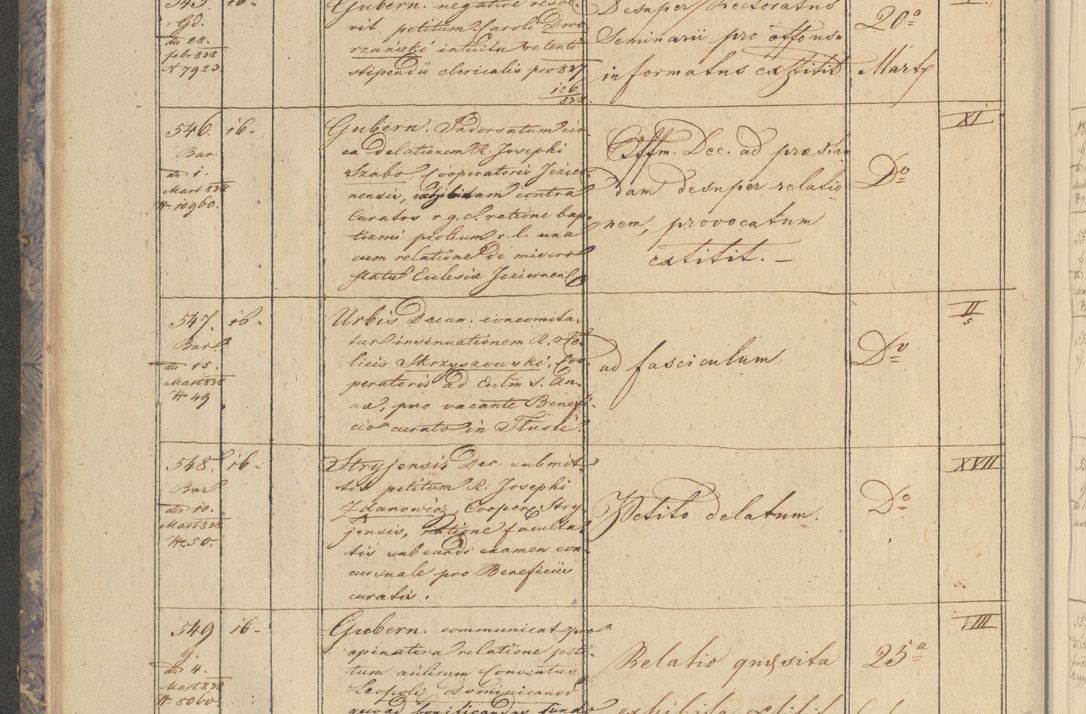 545. 16.
Gd.
dto 28.
febr 828
N 7923.
Gubern. negative resol-
vit petitum Caroli Dwo
rzanski intuitu retenti
stipendii clericalis pro 827
828
Desuper Rectoratus
Seminarii pro offonsa
informatus extitit
20a
Marty
546. 16.
Bar
dto 1.
Mart 828
N 10960.
Gubern. Indorsatum cir-
ca delationem R. Josephi
Szabo Cooperatoris Jezier-
nensis, contra
Curatos r. g. c. ratione bap-
tizmi prolium r. l. una
cum relatione de misero
statu Eclesiæ Jeziernen
Offm. Dec. ad præstan
dam desuper relatio
nem, provocatum
extitit. -
Do
XI
547. 16.
Bar
dto 15.
Mart 828
N 49
Urbis Decan. concomita-
tur insinuationem R. Fe-
licis Skrzyszowski, Coo
peratoris ad Eccltm S. An-
næ, pro vacante Benefi-
cio curato in Tłuste.
ad fasciculum.
Do
II
5
548. 16.
Bar
dto 10.
Mart 828
N 50.
Stryjensis Dec. submit-
tit petitum R. Josephi
Zdanowicz Cooper. Stry-
jensis, ratione faculta-
tis subeundi examen con-
cursuale pro Beneficiis
curatis.
Petito delatum.
Do
XVII
549 16.
g.
dto 4.
Mart 828
N 8060
Gubern. communicat pro
opinativa relatione peti-
tum aulicum Conventus
Leopoli Dominicanor
quoad bonificandos fundo
Relatio quæsita
exhibita extitit
25a
VIII